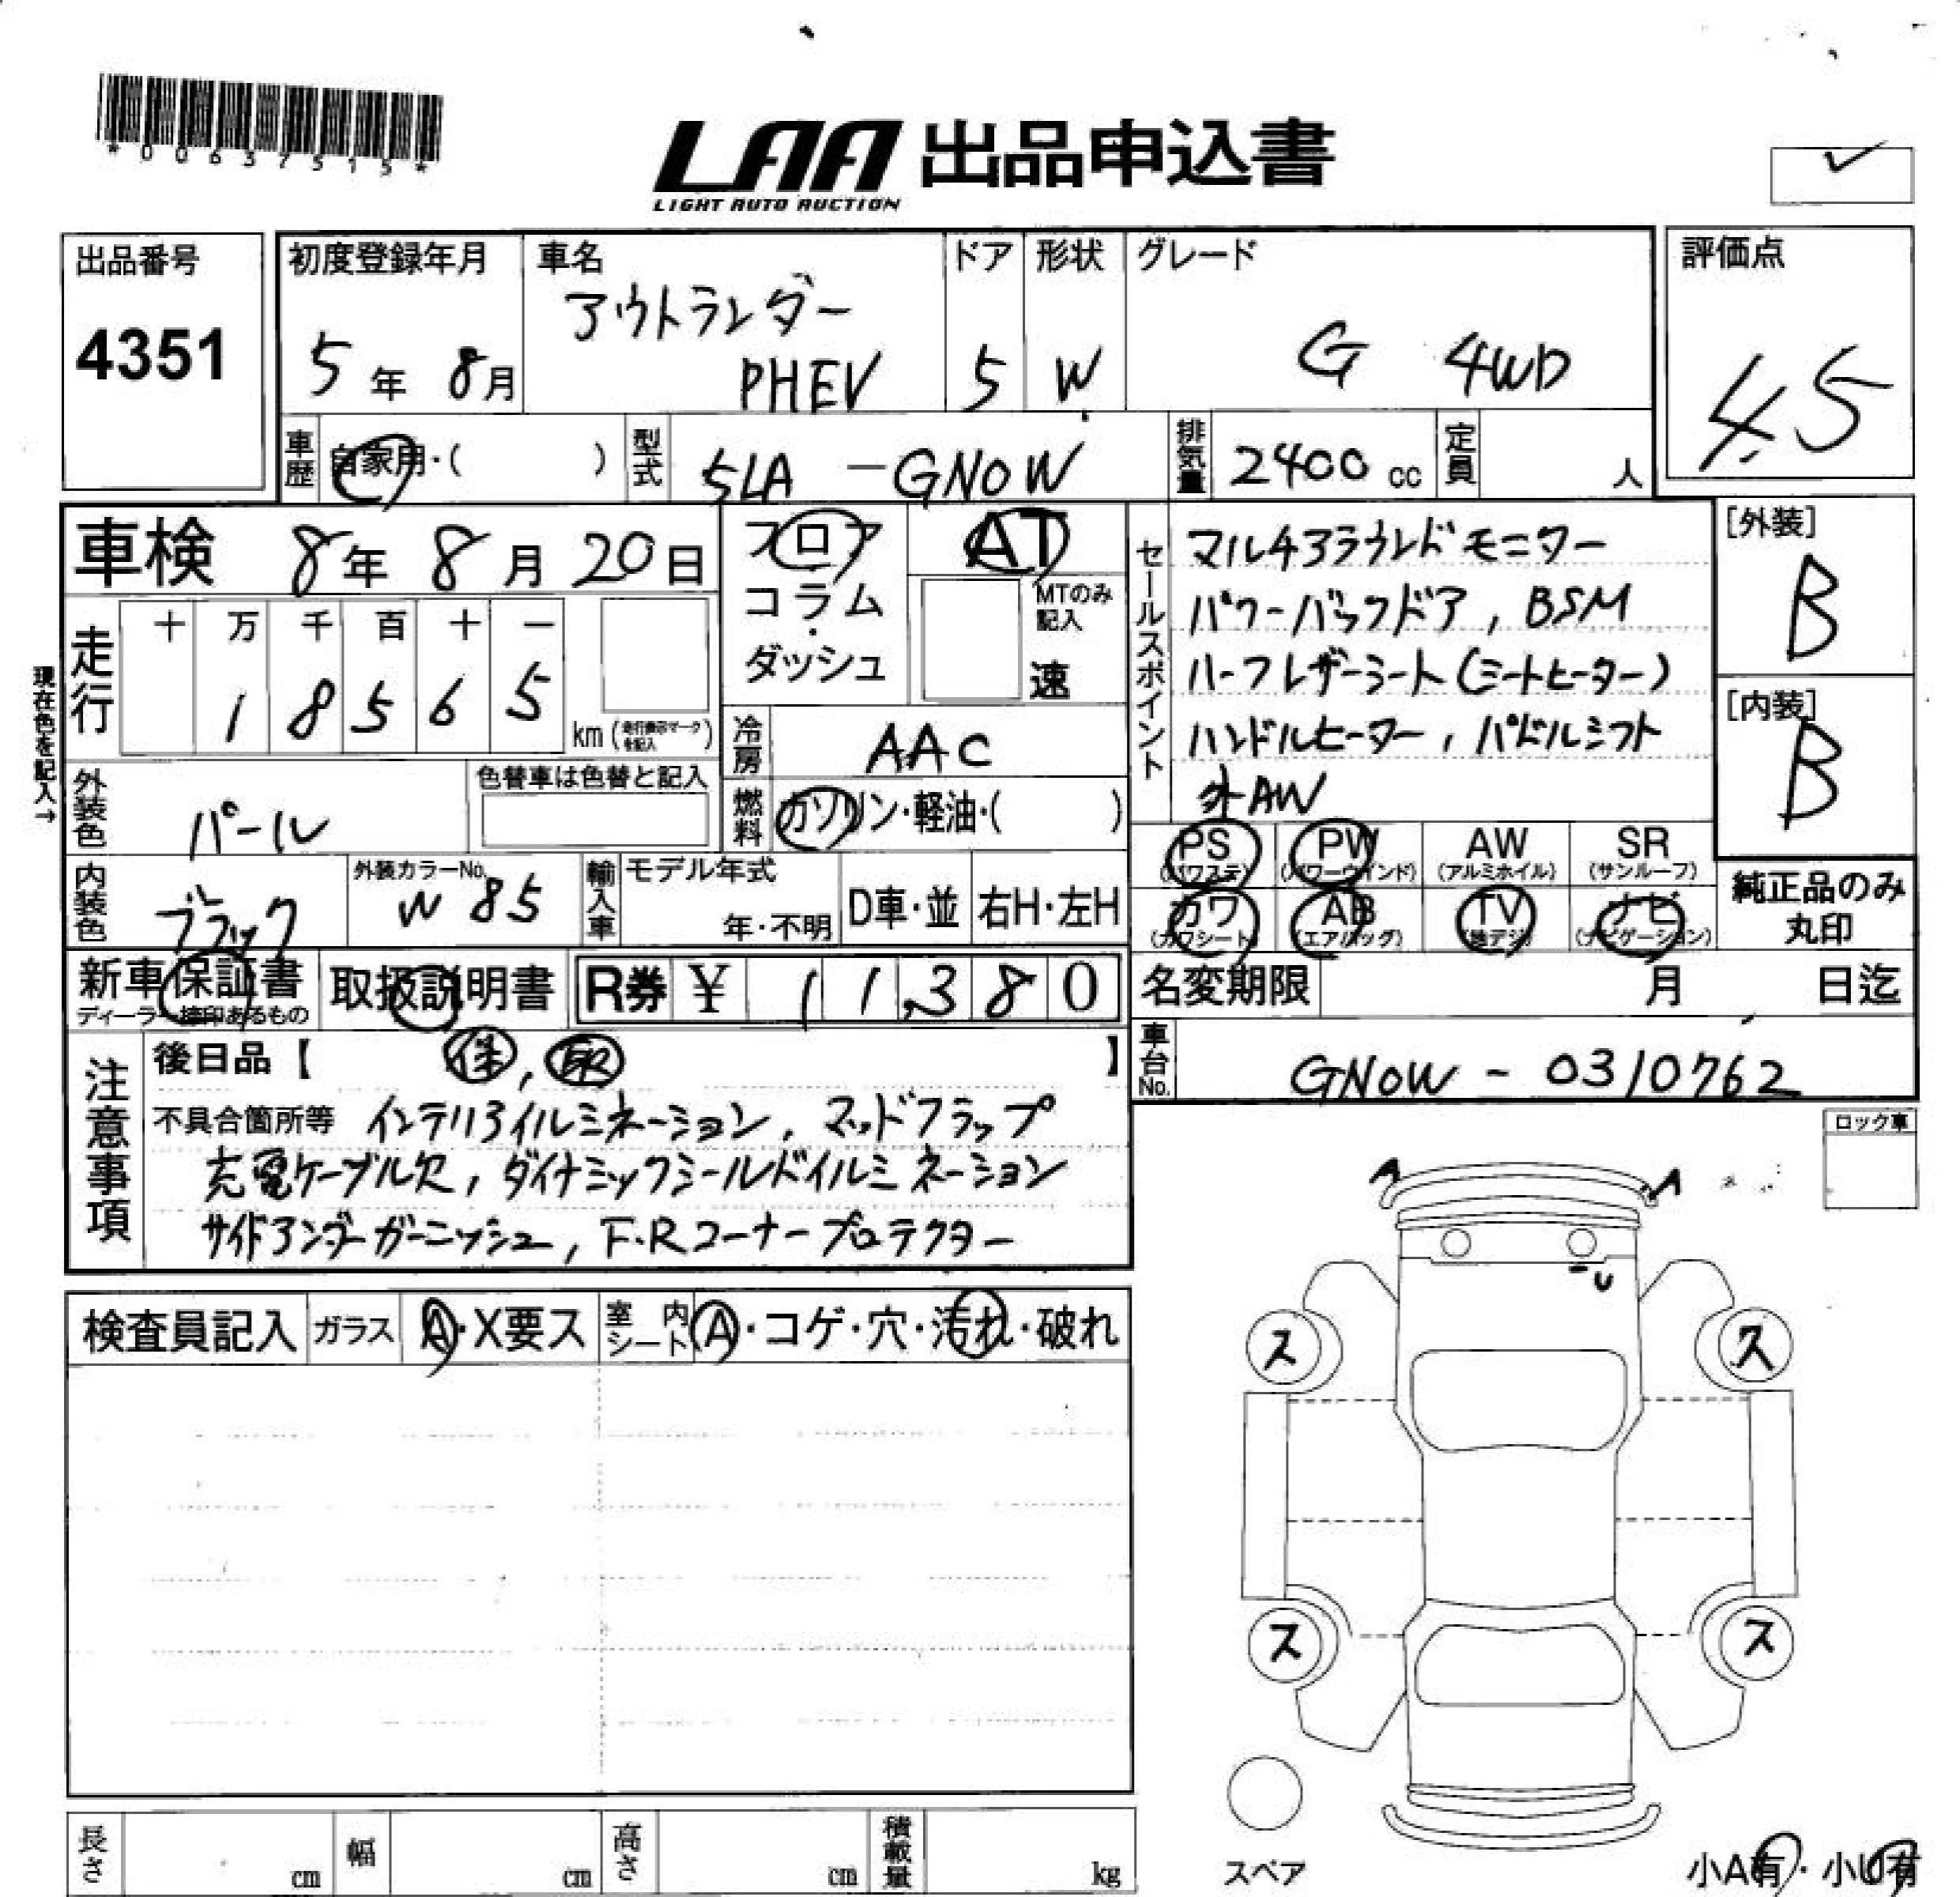 *00637515*
LAA 出品申込書
LIGHT AUTO AUCTION
出品番号
4351
初度登録年月
5年 8月
車名
アウトランダー
PHEV
ドア
5
形状
W
グレード
G 4WD
評価点
4.5
車歴
自家用・( )
型式
5LA-GN0W
排気量
2400 cc
定員
人
車検 8年 8月 20日
走行
十 万 千 百 十 一
1 8 5 6 5
km (走行表示マークを記入)
現在色を記入→
外装色
パール
色替車は色替と記入
内装色
ブラック
外装カラーNo.
W85
輸入車
モデル年式
年・不明
D車・並
右H・左H
フロア
・
コラム
・
ダッシュ
AT
MTのみ記入
速
冷房
AAC
燃料
ガソリン・軽油・( )
セールスポイント
マルチアラウンドモニター
パワーバックドア, BSM
ハーフレザーシート(シートヒーター)
ハンドルヒーター, パドルシフト
外AW
[外装]
B
[内装]
B
PS
(パワステ)
PW
(パワーウインド)
AW
(アルミホイル)
SR
(サンルーフ)
カワ
(カワシート)
AB
(エアバッグ)
TV
(地デジ)
ナビ
(ナビゲーション)
純正品のみ
丸印
新車保証書
ディーラー捺印あるもの
取扱説明書
R券 ¥ 11,380
名変期限 月 日迄
車台No.
GN0W - 0310762
注意事項
後日品【 保, 取 】
不具合箇所等 インテリアイルミネーション, マッドフラップ
充電ケーブル欠, ダイナミックシールドイルミネーション
サイドアンダーガーニッシュ, F・Rコーナープロテクター
ロック車
検査員記入
ガラス
A・X要ス
室内シート
A・コゲ・穴・汚れ・破れ
A
A
-U
ス
ス
ス
ス
スペア
小A有・小U有
長さ
cm
幅
cm
高さ
cm
積載量
kg